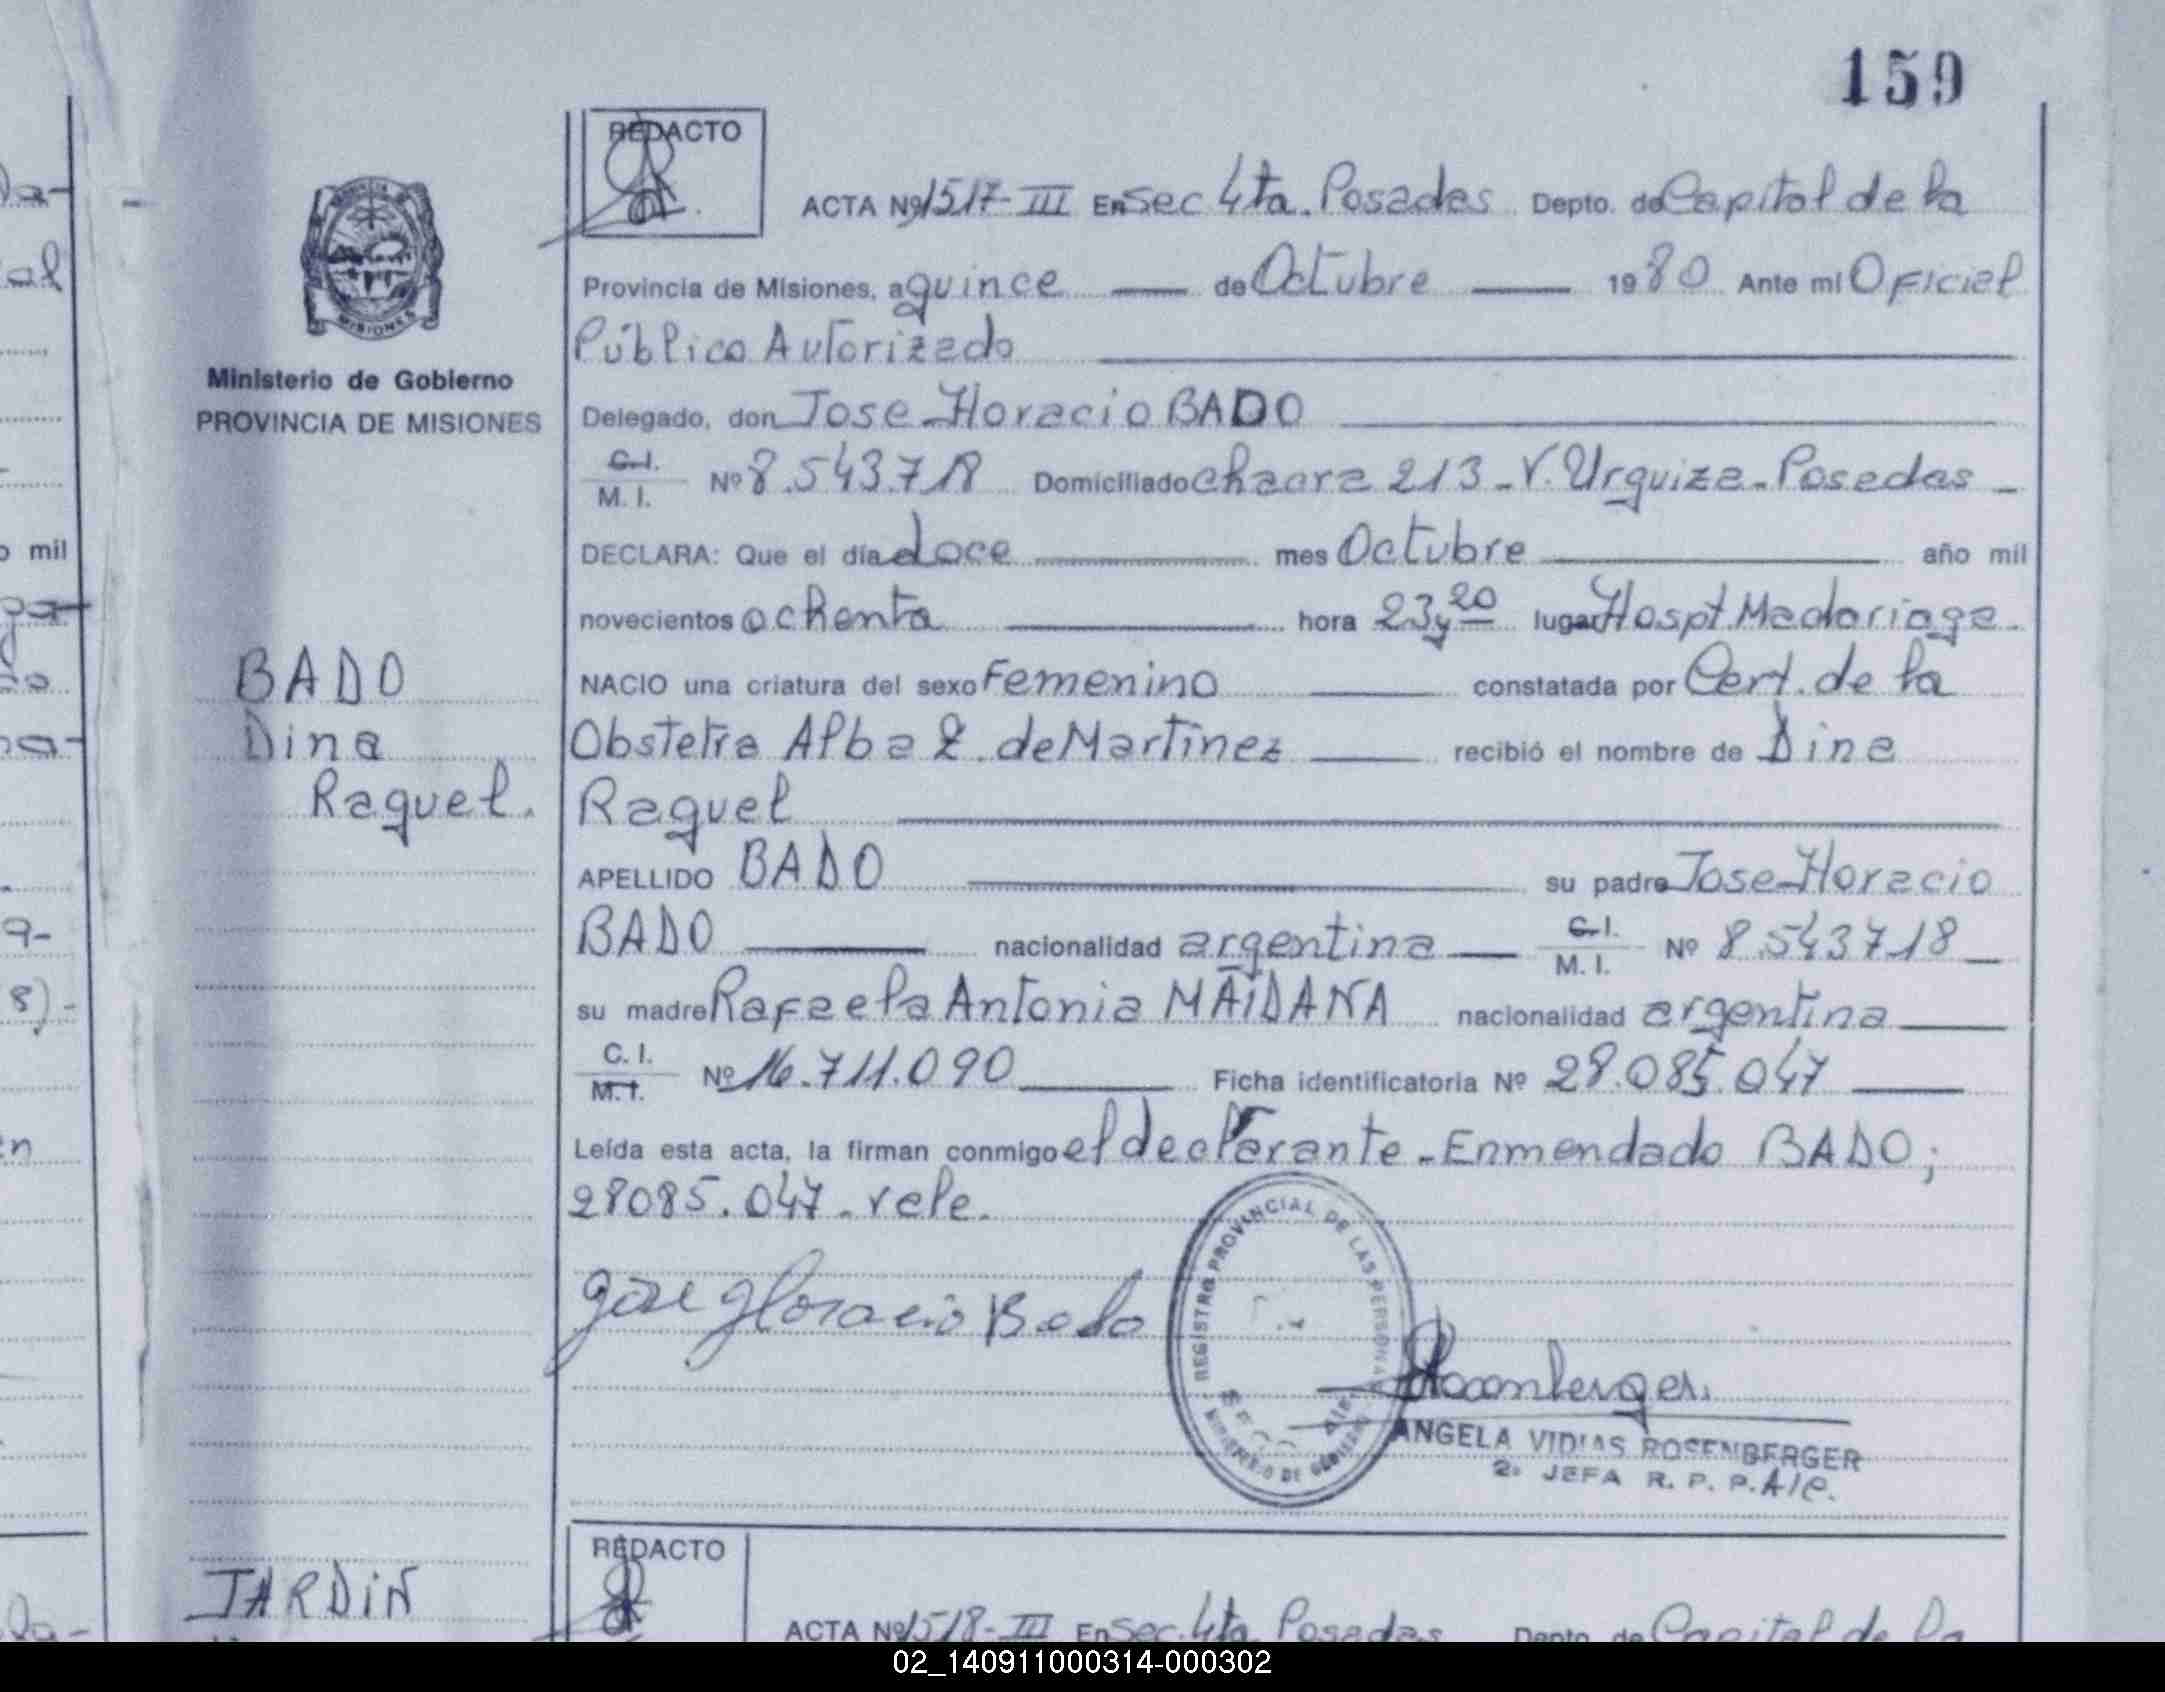 159
REDACTO
ACTA Nº 1517-III En Sec 4ta. Posadas Depto. de Capital de la
Provincia de Misiones, a quince de Octubre 1980 Ante mi Oficial
Público Autorizado
Ministerio de Gobierno
PROVINCIA DE MISIONES
Delegado, don Jose Horacio BADO
C.I.
M. I. Nº 8.543.718 Domiciliado chacra 213 - V. Urquiza - Posadas -
DECLARA: Que el día doce mes Octubre año mil
novecientos ochenta hora 23 y 20 lugar Hospt. Madariaga.
BADO
Dina
Raquel.
NACIO una criatura del sexo Femenino constatada por Cert. de la
Obstetra Alba Z. de Martinez recibió el nombre de Dina
Raquel
APELLIDO BADO su padre Jose Horacio
BADO nacionalidad argentina C.I.
M. I. Nº 8.543718
su madre Rafaela Antonia MAIDANA nacionalidad argentina
C. I.
M. I. Nº 16.711.090 Ficha identificatoria Nº 28.085.047
Leída esta acta, la firman conmigo el declarante - Enmendado BADO;
28085.047 - vale.
Jose Horacio Bado
REGISTRO PROVINCIAL DE LAS PERSONAS
MINISTERIO DE GOBIERNO
Rosenberger
ANGELA VIDIAS ROSENBERGER
2º JEFA R. P. P. A/C.
JARDIN
REDACTO
ACTA Nº 1518-III En Sec. 4ta. Posadas Depto. de Capital de la
02_140911000314-000302